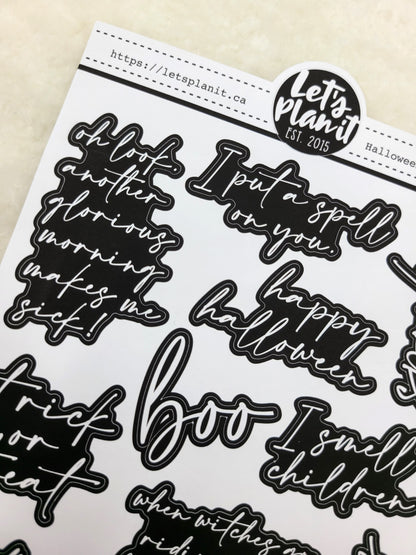 https://letsplanit.ca
Let's
Planit
EST. 2015
Hallowee
oh look,
another
glorious
morning
makes me
sick!
I put a spell
on you.
happy
halloween
boo
trick
or
eat
I smell
children
when witches
ridi